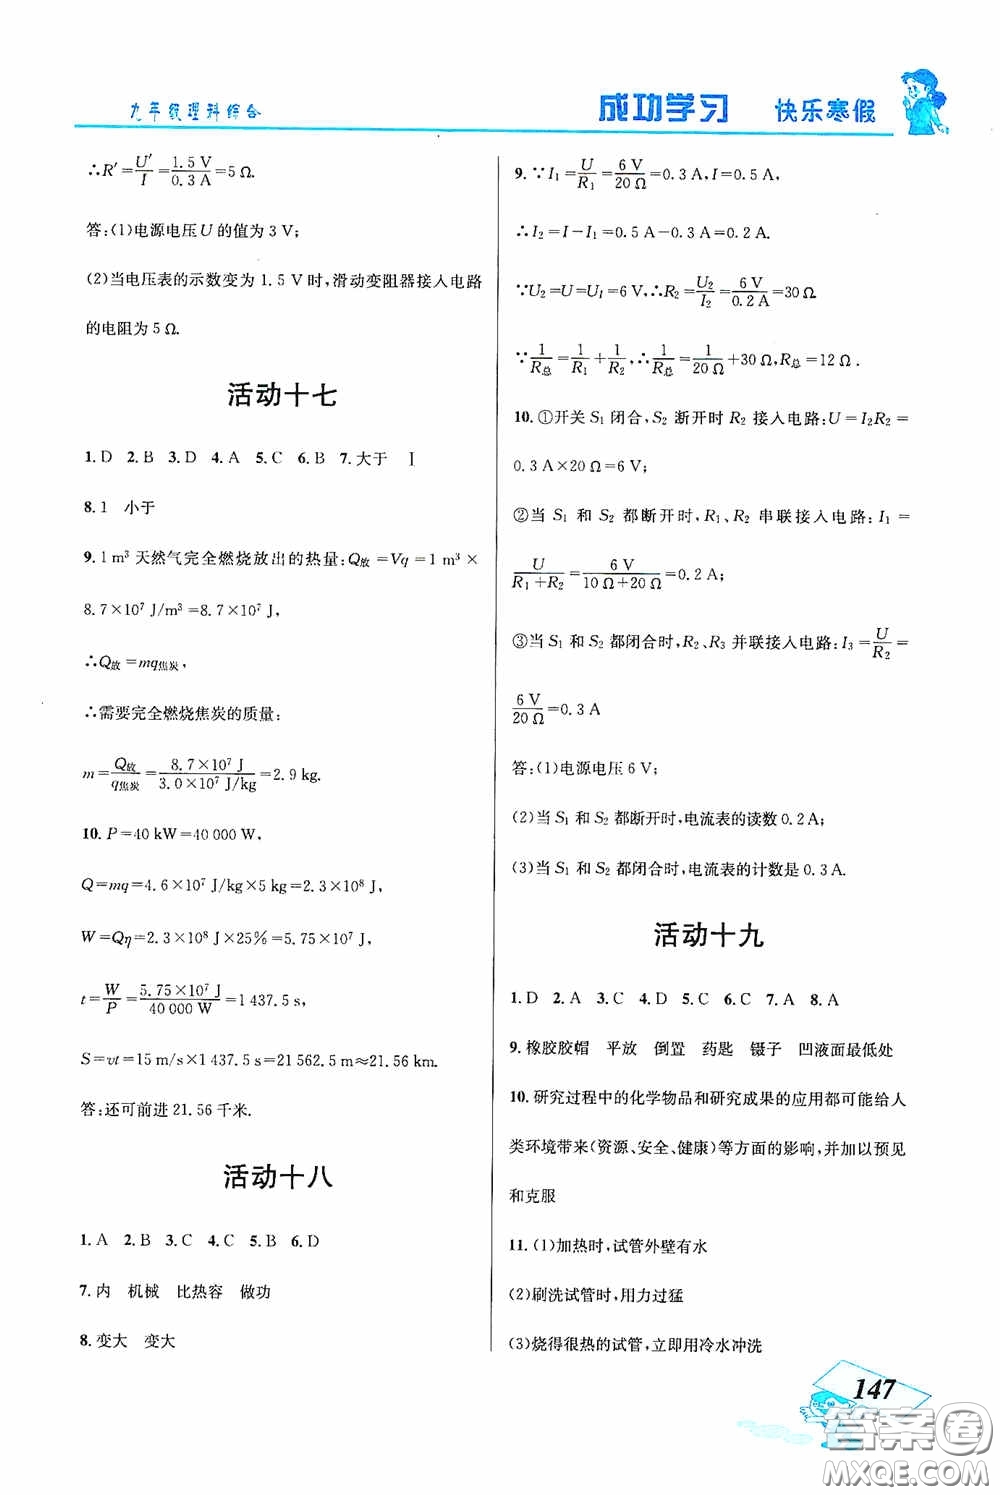 九年级理科综合
成功学习 快乐寒假
∴R′=U′/I=1.5 V/0.3 A=5 Ω.
答:(1)电源电压U的值为3 V;
(2)当电压表的示数变为1.5 V时,滑动变阻器接入电路
的电阻为5 Ω.
活动十七
1.D 2.B 3.D 4.A 5.C 6.B 7.大于 Ⅰ
8.1 小于
9.1 m³天然气完全燃烧放出的热量:Q放=Vq=1 m³×
8.7×10⁷ J/m³=8.7×10⁷ J,
∴Q放=mq焦炭,
∴需要完全燃烧焦炭的质量:
m=Q放/q焦炭=8.7×10⁷ J/3.0×10⁷ J/kg=2.9 kg.
10.P=40 kW=40 000 W,
Q=mq=4.6×10⁷ J/kg×5 kg=2.3×10⁸ J,
W=Qη=2.3×10⁸ J×25%=5.75×10⁷ J,
t=W/P=5.75×10⁷ J/40 000 W=1 437.5 s,
S=vt=15 m/s×1 437.5 s=21 562.5 m≈21.56 km.
答:还可前进21.56千米.
活动十八
1.A 2.B 3.C 4.C 5.B 6.D
7.内 机械 比热容 做功
8.变大 变大
9.∵I₁=U/R₁=6 V/20 Ω=0.3 A,I=0.5 A,
∴I₂=I-I₁=0.5 A-0.3 A=0.2 A.
∵U₂=U=U₁=6 V,∴R₂=U₂/I₂=6 V/0.2 A=30 Ω.
∵1/R总=1/R₁+1/R₂,∴1/R总=1/20 Ω+30 Ω,R总=12 Ω.
10.①开关S₁闭合,S₂断开时R₂接入电路:U=I₂R₂=
0.3 A×20 Ω=6 V;
②当S₁和S₂都断开时,R₁、R₂串联接入电路:I₁=
U/R₁+R₂=6 V/10 Ω+20 Ω=0.2 A;
③当S₁和S₂都闭合时,R₂、R₃并联接入电路:I₃=U/R₂=
6 V/20 Ω=0.3 A
答:(1)电源电压6 V;
(2)当S₁和S₂都断开时,电流表的读数0.2 A;
(3)当S₁和S₂都闭合时,电流表的计数是0.3 A.
活动十九
1.D 2.A 3.C 4.D 5.C 6.C 7.A 8.A
9.橡胶胶帽 平放 倒置 药匙 镊子 凹液面最低处
10.研究过程中的化学物品和研究成果的应用都可能给人
类环境带来(资源、安全、健康)等方面的影响,并加以预见
和克服
11.(1)加热时,试管外壁有水
(2)刷洗试管时,用力过猛
(3)烧得很热的试管,立即用冷水冲洗
147
答案圈
MXQE.COM